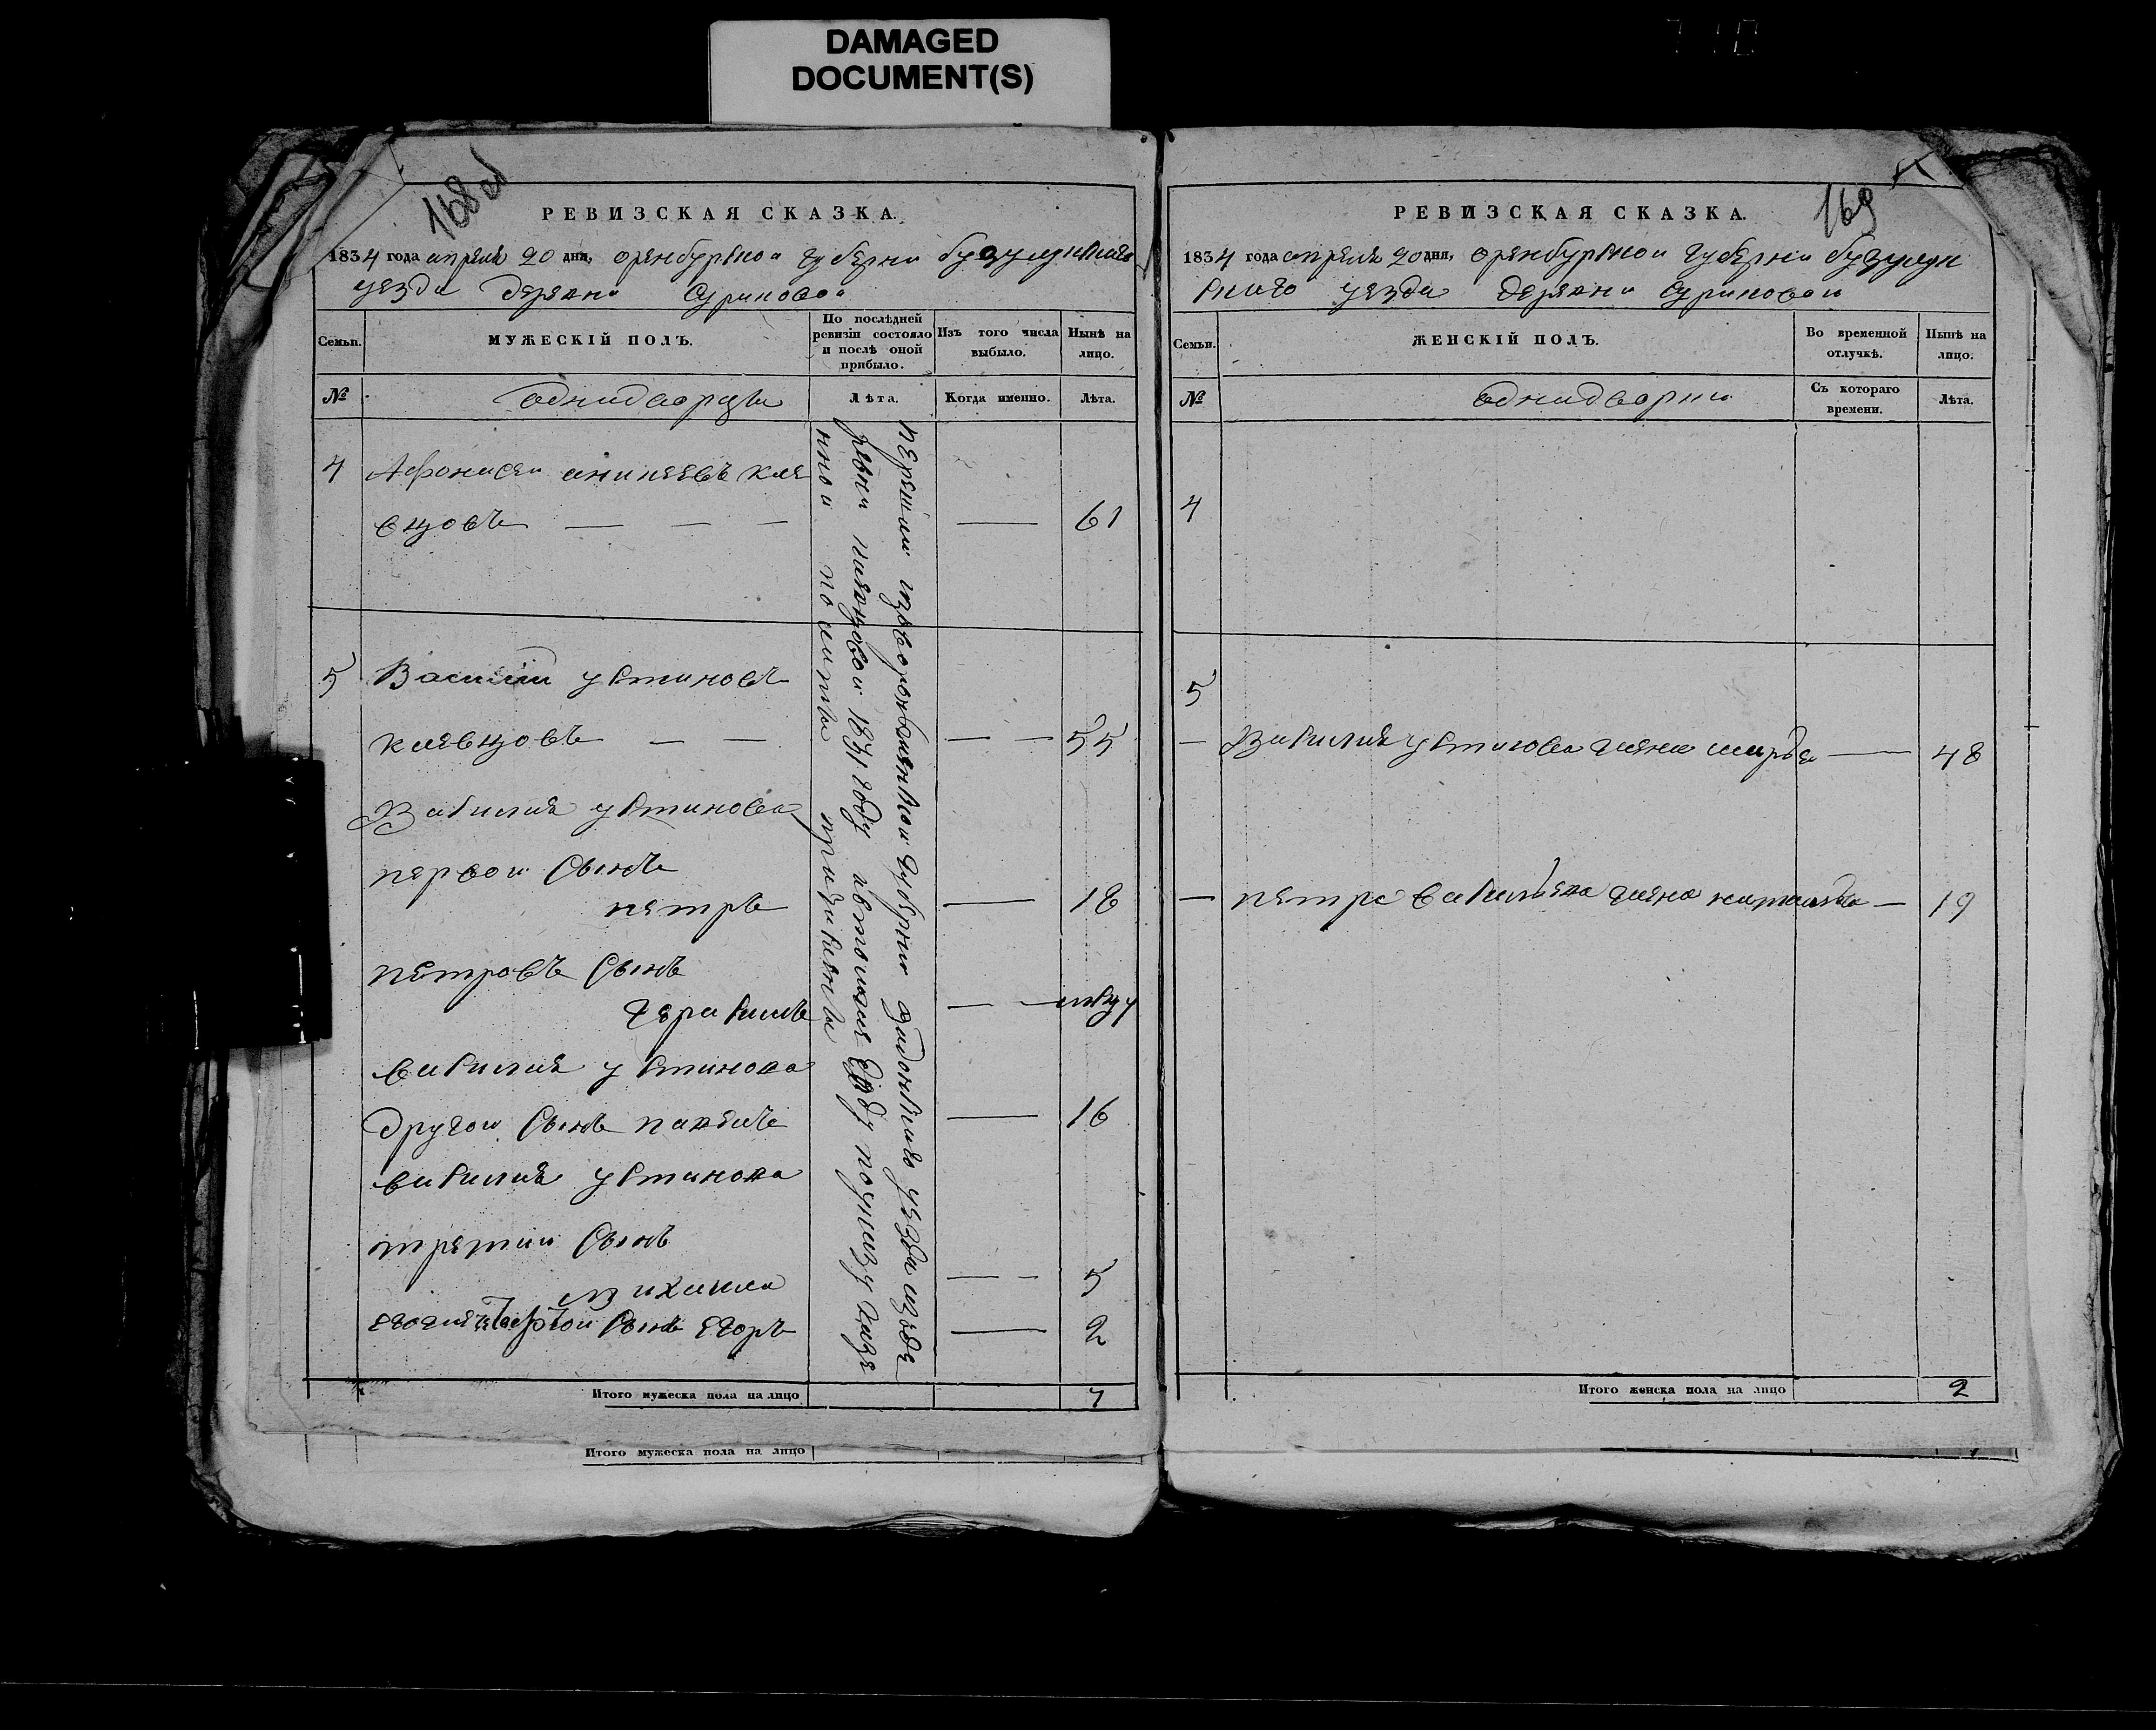 DAMAGED
DOCUMENT(S)
168 об
РЕВИЗСКАЯ СКАЗКА.
1834 года апреля 20 дня, оренбурской губерни бузулукскаго
уезда деревни Суриковой
Семьи.
МУЖЕСКІЙ ПОЛЪ.
По послѣдней
ревизіи состояло
и послѣ оной
прибыло.
Изъ того числа
выбыло.
Нынѣ на
лицо.
№
однодворцы
Лѣта.
Когда именно.
Лѣта.
4 Афонасеи
61
5 Василии устиновъ
клевцовъ — — — — 55
Василия устинова
первои сынъ
петръ — 18
петровъ сынъ
герасимъ — —
василия устинова
другои сынъ павелъ — 16
василия устинова
третии сынъ
михаила — — 5
сынъ егоръ — 2
перешли из воронежской губернии задонскаго уезда из де
ревни 1831 году
Итого мужеска пола на лицо 7
Итого мужеска пола на лицо
169
РЕВИЗСКАЯ СКАЗКА.
1834 года апреля 20 дня, оренбурской губерни бузулук
скаго уезда деревни Суриковой
Семьи.
ЖЕНСКІЙ ПОЛЪ.
Во временной
отлучкѣ.
Нынѣ на
лицо.
№
однодворки
Съ котораго
времени.
Лѣта.
4
5
— Василия устинова жена марья — 48
— петра васильева жена наталья — 19
Итого женска пола на лицо 2